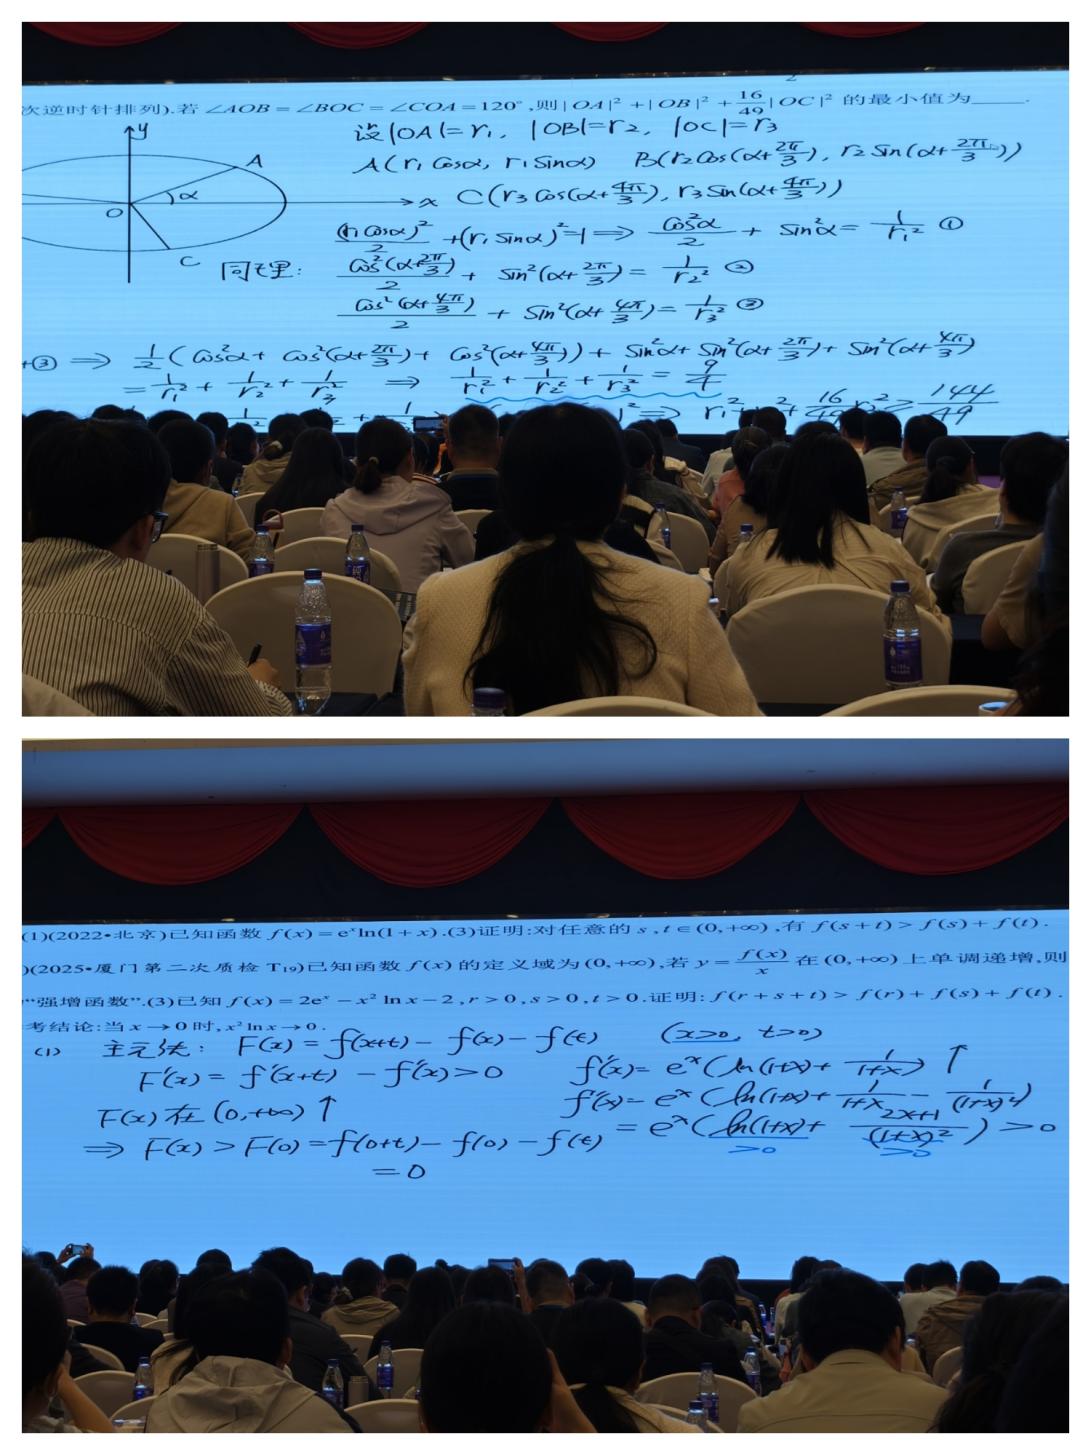 2
次逆时针排列).若 ∠AOB=∠BOC=∠COA=120°,则|OA|²+|OB|²+16/49|OC|² 的最小值为____.
设|OA|=r₁, |OB|=r₂, |OC|=r₃
A(r₁cosα, r₁sinα) B(r₂cos(α+2π/3), r₂sin(α+2π/3))
C(r₃cos(α+4π/3), r₃sin(α+4π/3))
y
A
α
O
x
C
(r₁cosα)²/2+(r₁sinα)²=1⇒ cos²α/2 + sin²α= 1/r₁² ①
同理: cos²(α+2π/3)/2 + sin²(α+2π/3)= 1/r₂² ②
cos²(α+4π/3)/2 + sin²(α+4π/3)= 1/r₃² ③
+③ ⇒ 1/2(cos²α+ cos²(α+2π/3)+ cos²(α+4π/3))+ sin²α+ sin²(α+2π/3)+ sin²(α+4π/3)
= 1/r₁²+ 1/r₂²+ 1/r₃² ⇒ 1/r₁²+ 1/r₂²+ 1/r₃² = 9/4
≥ 144/49
(1)(2022•北京)已知函数 f(x)=eˣln(1+x).(3)证明:对任意的 s,t∈(0,+∞),有 f(s+t)>f(s)+f(t).
)(2025•厦门第二次质检T₁₉)已知函数 f(x)的定义域为(0,+∞),若 y=f(x)/x 在(0,+∞)上单调递增,则
"强增函数".(3)已知 f(x)=2eˣ-x²lnx-2,r>0,s>0,t>0.证明:f(r+s+t)>f(r)+f(s)+f(t).
考结论:当 x→0 时,x²lnx→0.
(1) 主元法: F(x)= f(x+t)- f(x)- f(t) (x>0, t>0)
F'(x)= f'(x+t) - f'(x)>0 f'(x)= eˣ(ln(1+x)+ 1/(1+x)) ↑
F(x)在(0,+∞)↑ f''(x)= eˣ(ln(1+x)+ 1/(1+x) - 1/(1+x)²)
⇒ F(x)> F(0)=f(0+t)- f(0) - f(t) = eˣ(ln(1+x)+ (2x+1)/(1+x)²) >0
=0 >0 >0